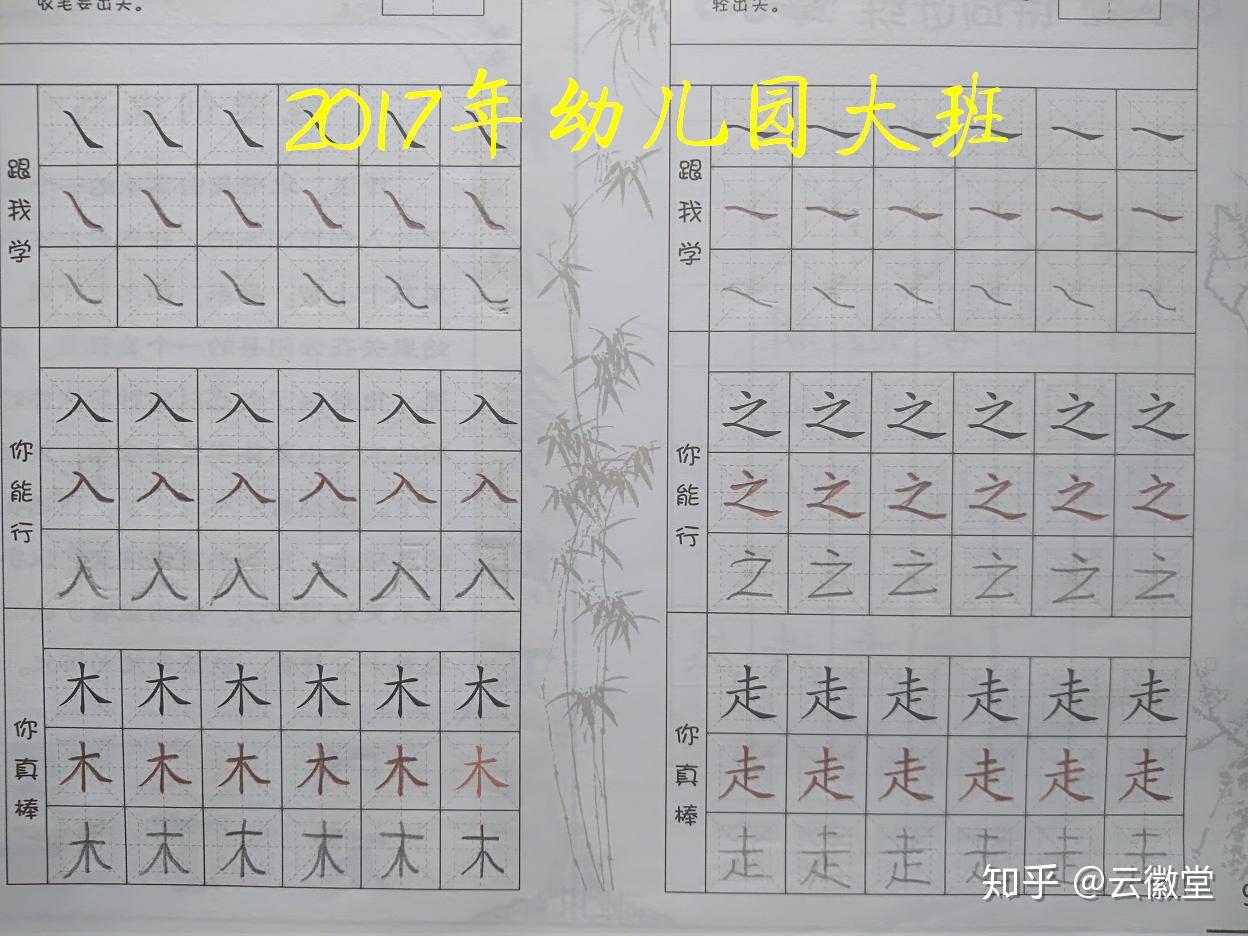 收笔要出尖。
轻出尖。
2017年幼儿园大班
跟我学
㇏ ㇏ ㇏ ㇏ ㇏ ㇏
㇏ ㇏ ㇏ ㇏ ㇏ ㇏
㇏ ㇏ ㇏ ㇏ ㇏ ㇏
你能行
入 入 入 入 入 入
入 入 入 入 入 入
入 入 入 入 入 入
你真棒
木 木 木 木 木 木
木 木 木 木 木 木
木 木 木 木 木 木
跟我学
㇏ ㇏ ㇏ ㇏ ㇏ ㇏
㇏ ㇏ ㇏ ㇏ ㇏ ㇏
㇏ ㇏ ㇏ ㇏ ㇏ ㇏
你能行
之 之 之 之 之 之
之 之 之 之 之 之
之 之 之 之 之 之
你真棒
走 走 走 走 走 走
走 走 走 走 走 走
走 走 走 走 走 走
知乎 @云徽堂